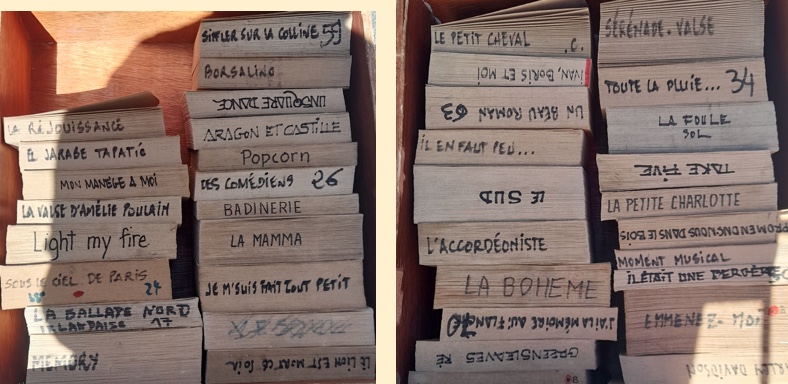 LA RÉJOUISSANCE
EL JARABE TAPATIO
MON MANÈGE A MOI
LA VALSE D'AMÉLIE POULAIN
Light my fire
SOUS LE CIEL DE PARIS 24
LA BALLADE NORD
IRLANDAISE 17
MEMORY
SIFFLER SUR LA COLLINE 59
BORSALINO
UNSQUARE DANCE
ARAGON ET CASTILLE
Popcorn
LES COMÉDIENS 26
BADINERIE
LA MAMMA
JE M'SUIS FAIT TOUT PETIT
LE LION EST MORT CE SOIR
LE PETIT CHEVAL .C.
IVAN, BORIS ET MOI
UN BEAU ROMAN 63
IL EN FAUT PEU...
LE SUD
L'ACCORDÉONISTE
LA BOHEME
J'AI LA MÉMOIRE QUI FLANCHE 70
GREENSLEAVES RÉ
SÉRÉNADE. VALSE
TOUTE LA PLUIE... 34
LA FOULE
SOL
TAKE FIVE
LA PETITE CHARLOTTE
PROMENONS NOUS DANS LE BOIS
MOMENT MUSICAL
IL ÉTAIT UNE BERGÈRE
EMMENEZ-MOI
DAVIDSON